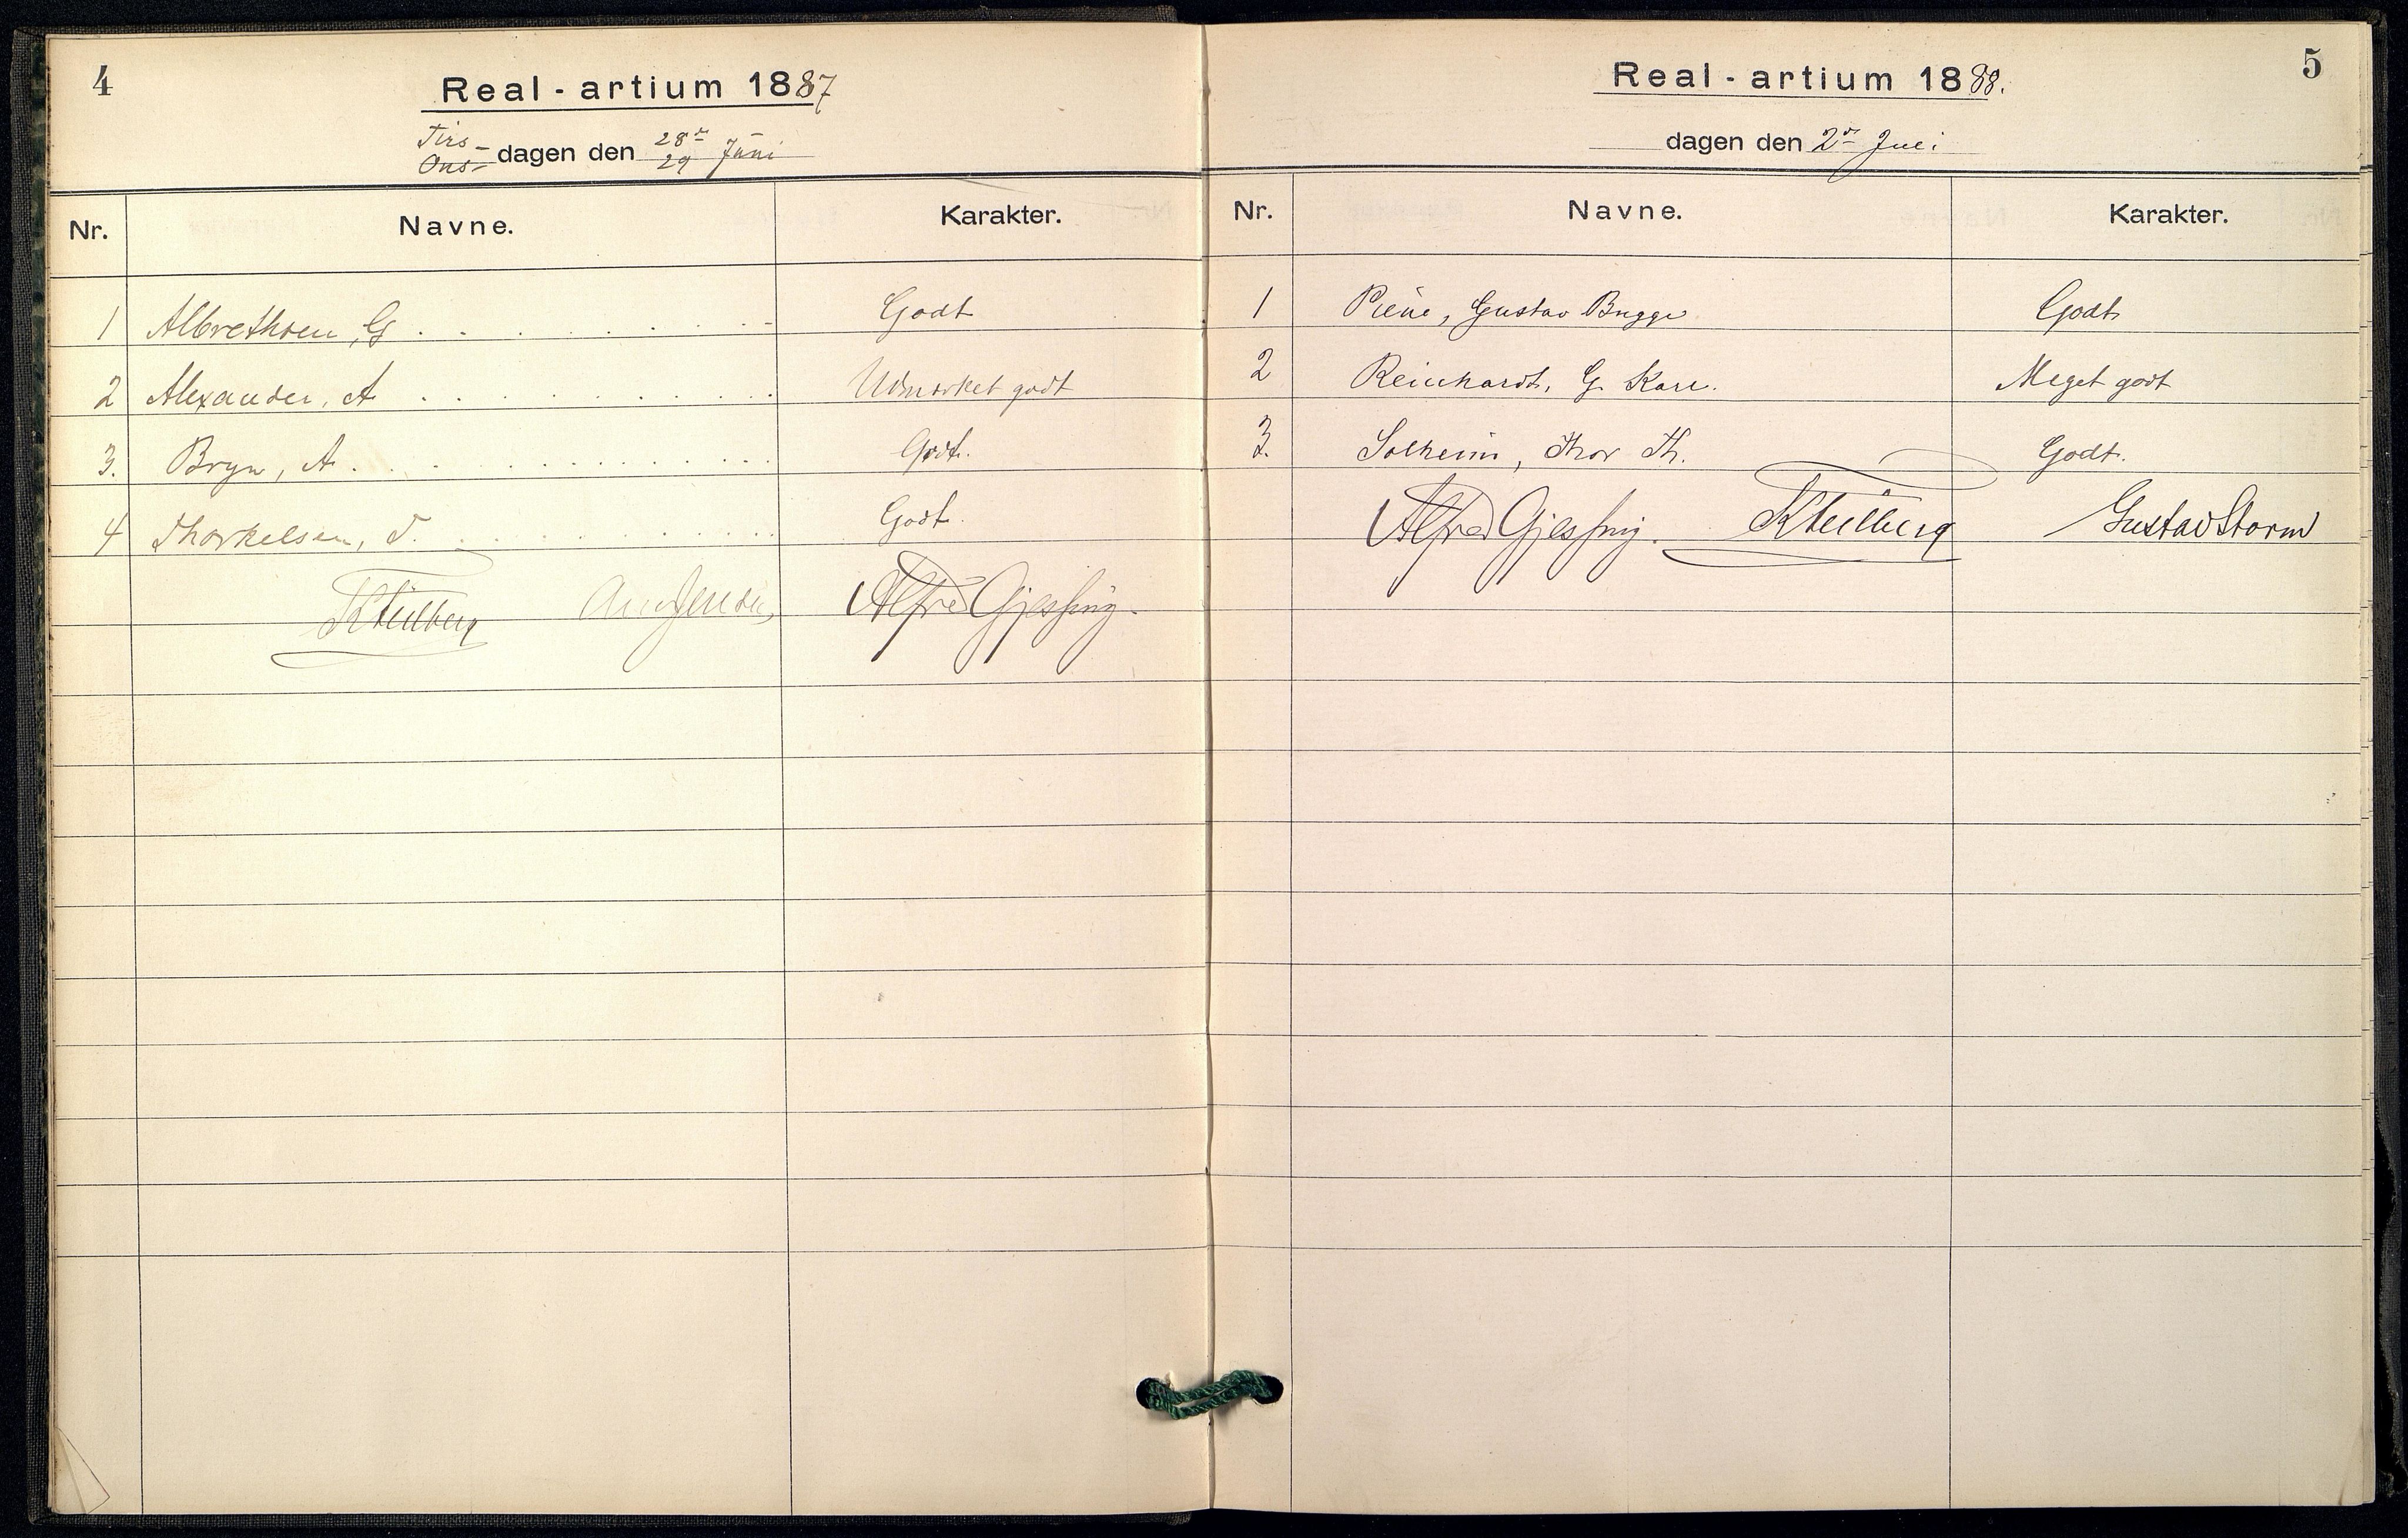 4
Real-artium 1887
Tirs-
Ons- dagen den 28de
29 Juni
Nr. Navne. Karakter.
1 Albrethsen, G. . . . . . . . . . Godt
2 Alexander, A . . . . . . . . . . Udmærket godt
3. Bryn, A. . . . . . . . . . . . Godt.
4 Thorkelsen, T. . . . . . . . . . . Godt.
Alfred Gjessing.
5
Real-artium 1888.
dagen den 2den Juli
Nr. Navne. Karakter.
1 Piene, Gustav Bugge Godt
2 Reinhardt, G. Karl. Meget godt
3. Solheim, Thor Th. Godt.
Alfred Gjessing. Gustav Storm